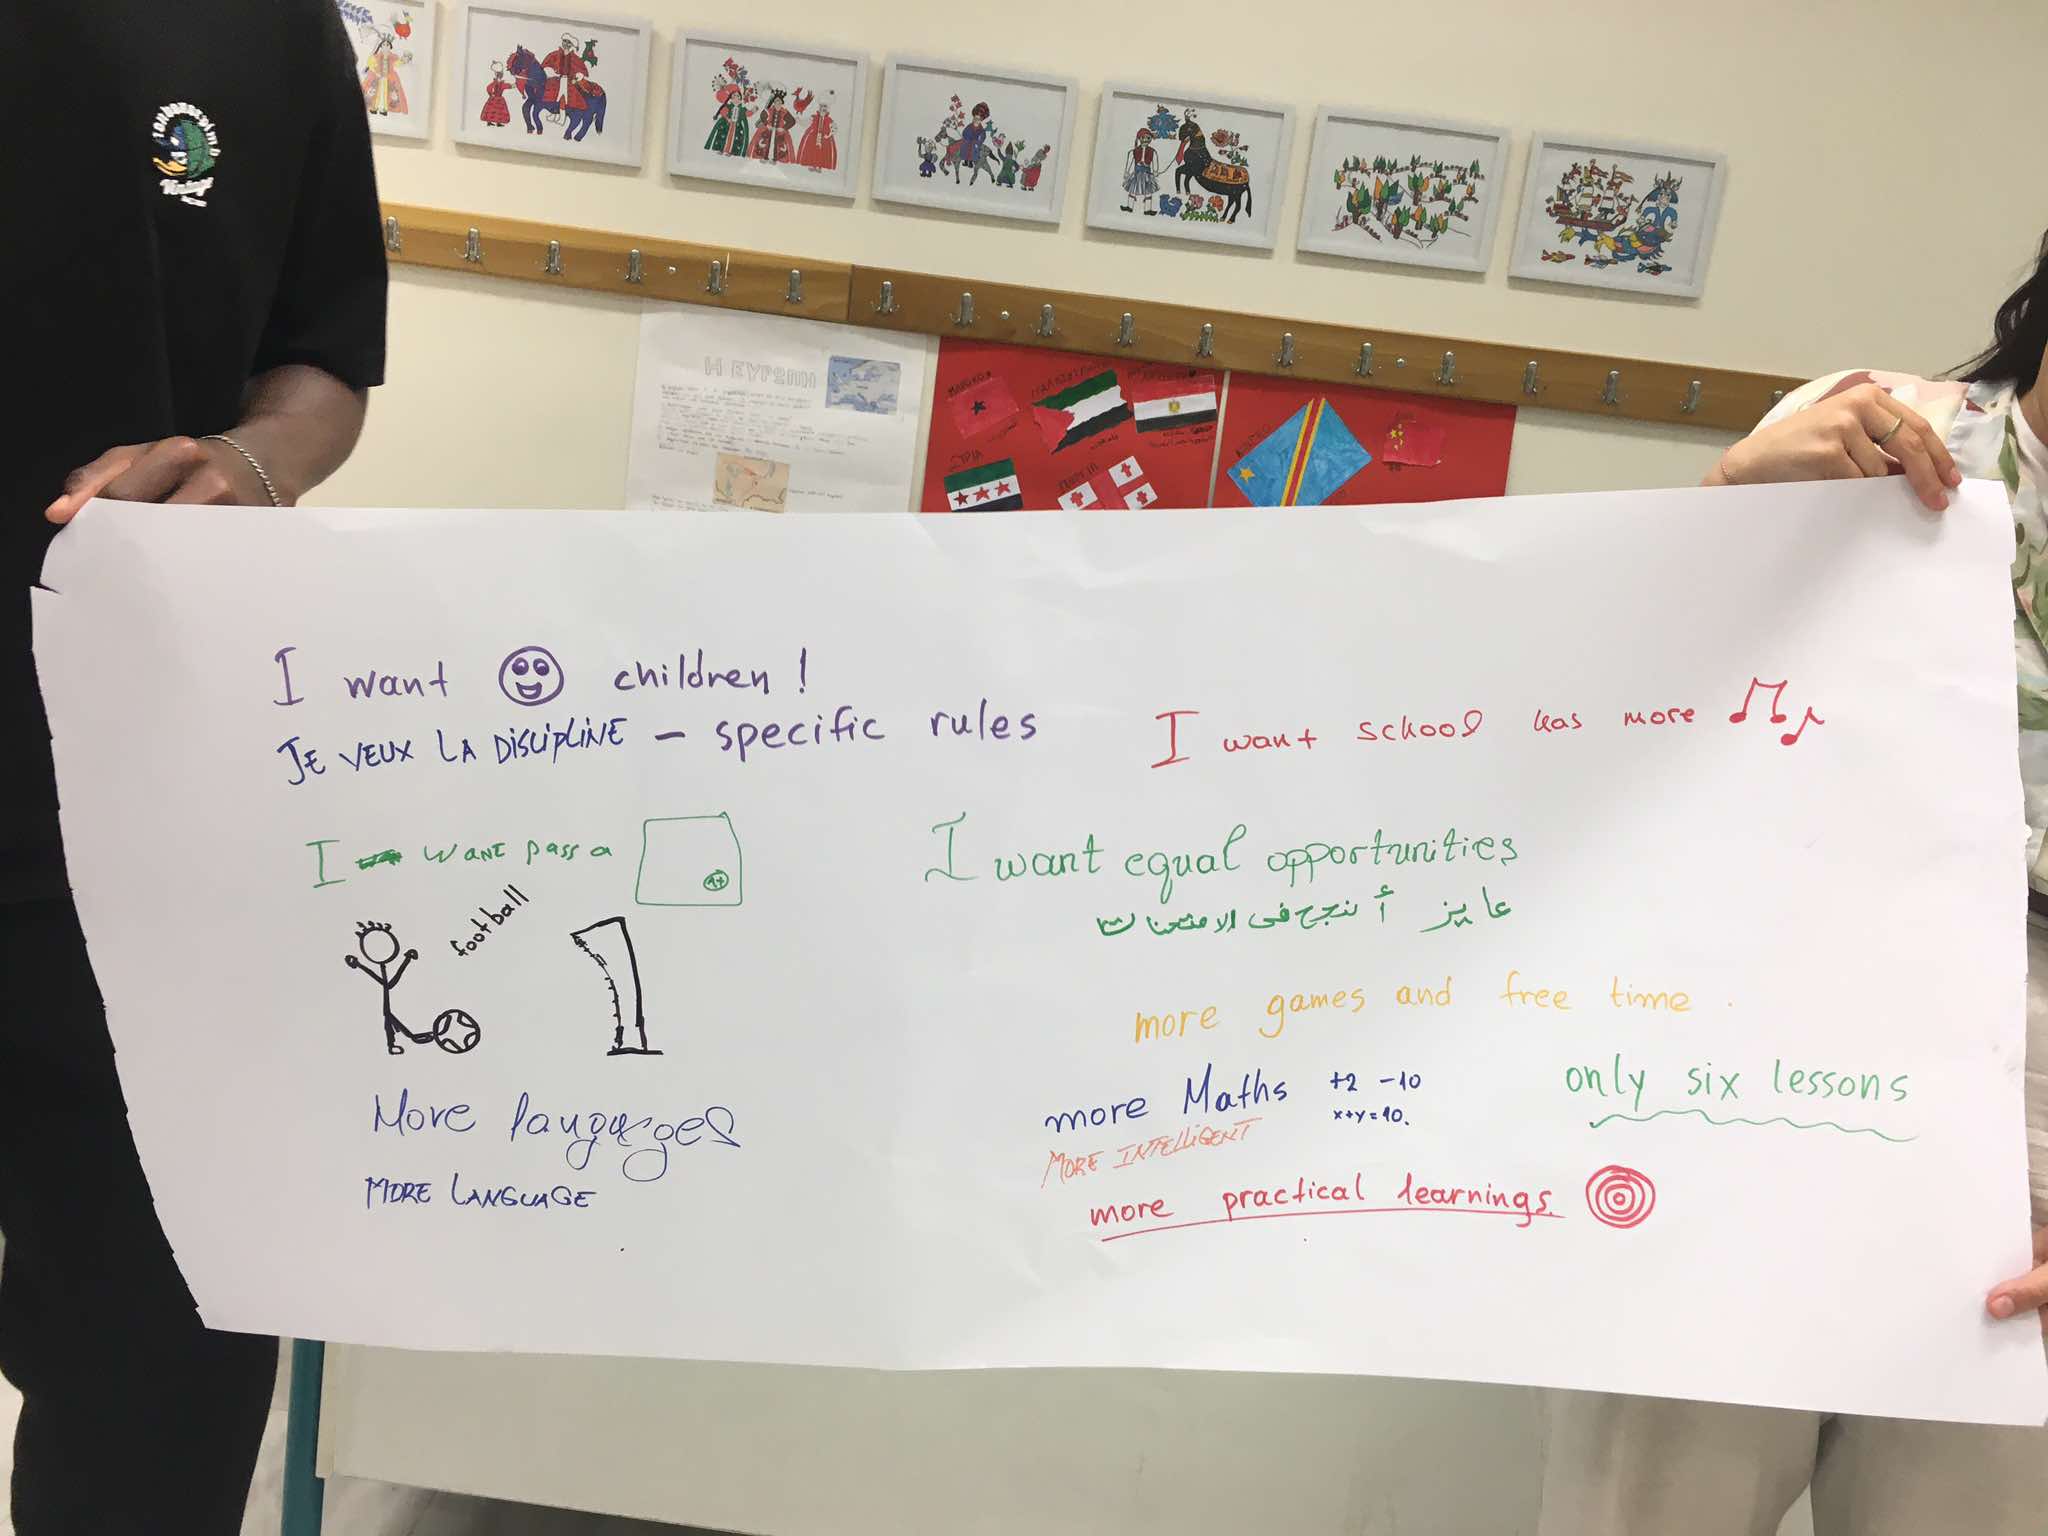 Vintage
Η ΕΥΡΩΠΗ
ΜΑΡΟΚΟ
ΣΥΡΙΑ
I want children!
JE VEUX LA DISCIPLINE – specific rules
I want school has more
I WANT pass a
A+
I want equal opportunities
عايز أنجح في الامتحنات
football
more games and free time.
more Maths +2 -10
x+y=10.
only six lessons
More languages
MORE INTELLIGENT
MORE LANGUAGE
more practical learnings.